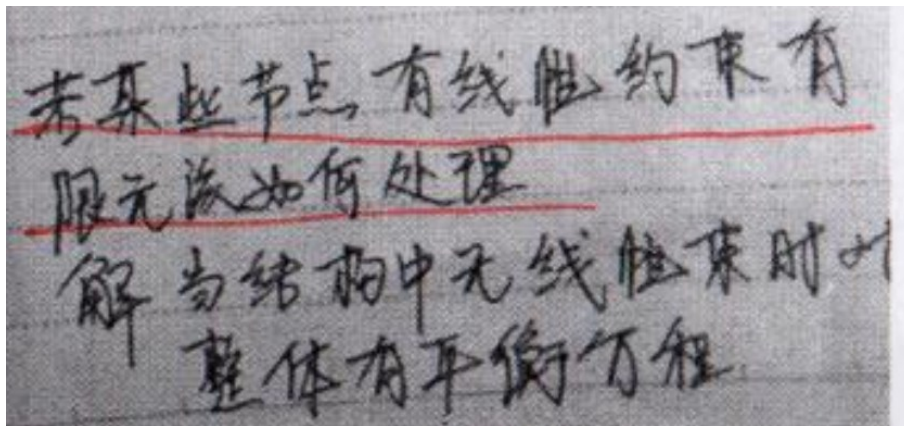 若某些节点有线性约束有
限元法如何处理
解 当结构中无线性束时对
整体有平衡方程